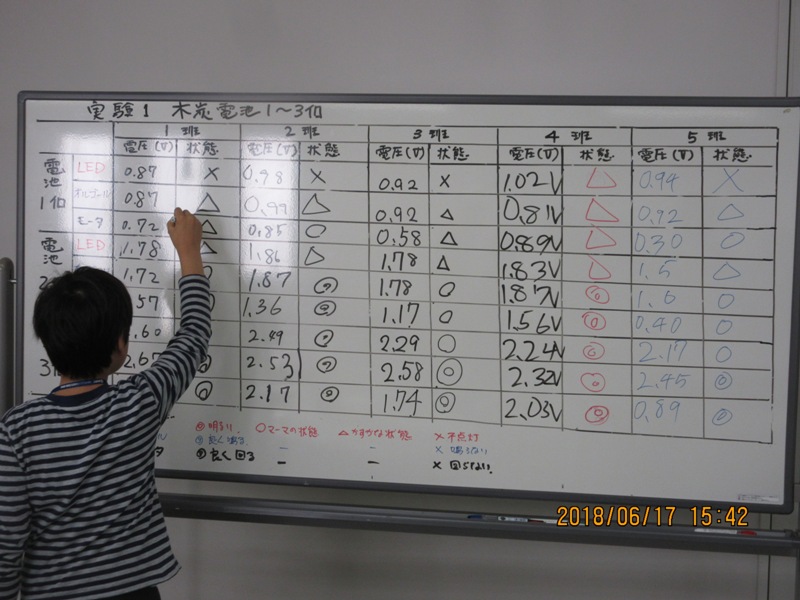 実験1 木炭電池1〜3個
1班 2班 3班 4班 5班
電圧(V) 状態 電圧(V) 状態 電圧(V) 状態 電圧(V) 状態 電圧(V) 状態
電池1個 LED 0.87 × 0.98 × 0.92 × 1.02V △ 0.94 ×
オルゴール 0.87 △ 0.99 △ 0.92 △ 0.81V △ 0.92 △
モータ 0.72 △ 0.85 ○ 0.58 △ 0.89V △ 0.30 ○
電池 LED 1.78 1.86 △ 1.78 △ 1.83V △ 1.5 △
1.72 ○ 1.87 ◎ 1.78 ○ 1.87V ◎ 1.6 ○
57 1.36 ◎ 1.17 ○ 1.56V ◎ 0.40 ○
.60 2.49 ◎ 2.29 ○ 2.24V ◎ 2.17 ○
3個 2.67 ◎ 2.53 ◎ 2.58 ◎ 2.32V ○ 2.45 ◎
◎ 2.17 ◎ 1.74 ◎ 2.03V ◎ 0.89 ◎
◎明るい ○マーマの状態 △かすかな状態 ×不点灯
◎良く鳴る ×鳴らない
◎良く回る ー ー ×回らない
2018/06/17 15:42